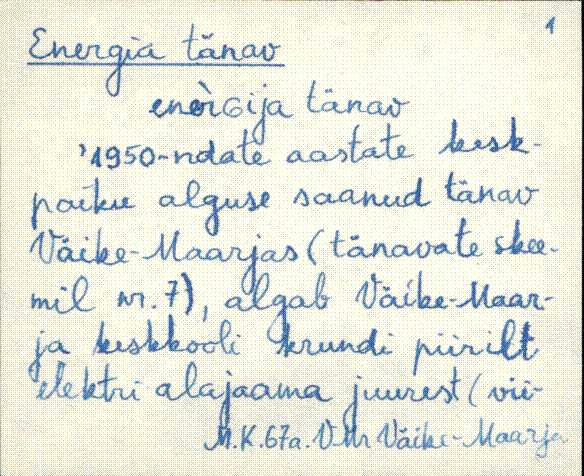 1
Energia tänav
enèrGija tänav
'1950-ndate aastate kesk-
paiku alguse saanud tänav
Väike-Maarjas (tänavate skee-
mil nr. 7), algab Väike-Maar-
ja keskkooli krundi piirilt
elektri alajaama juurest (vii-
M.K. 67a. VMr Väike-Maarja